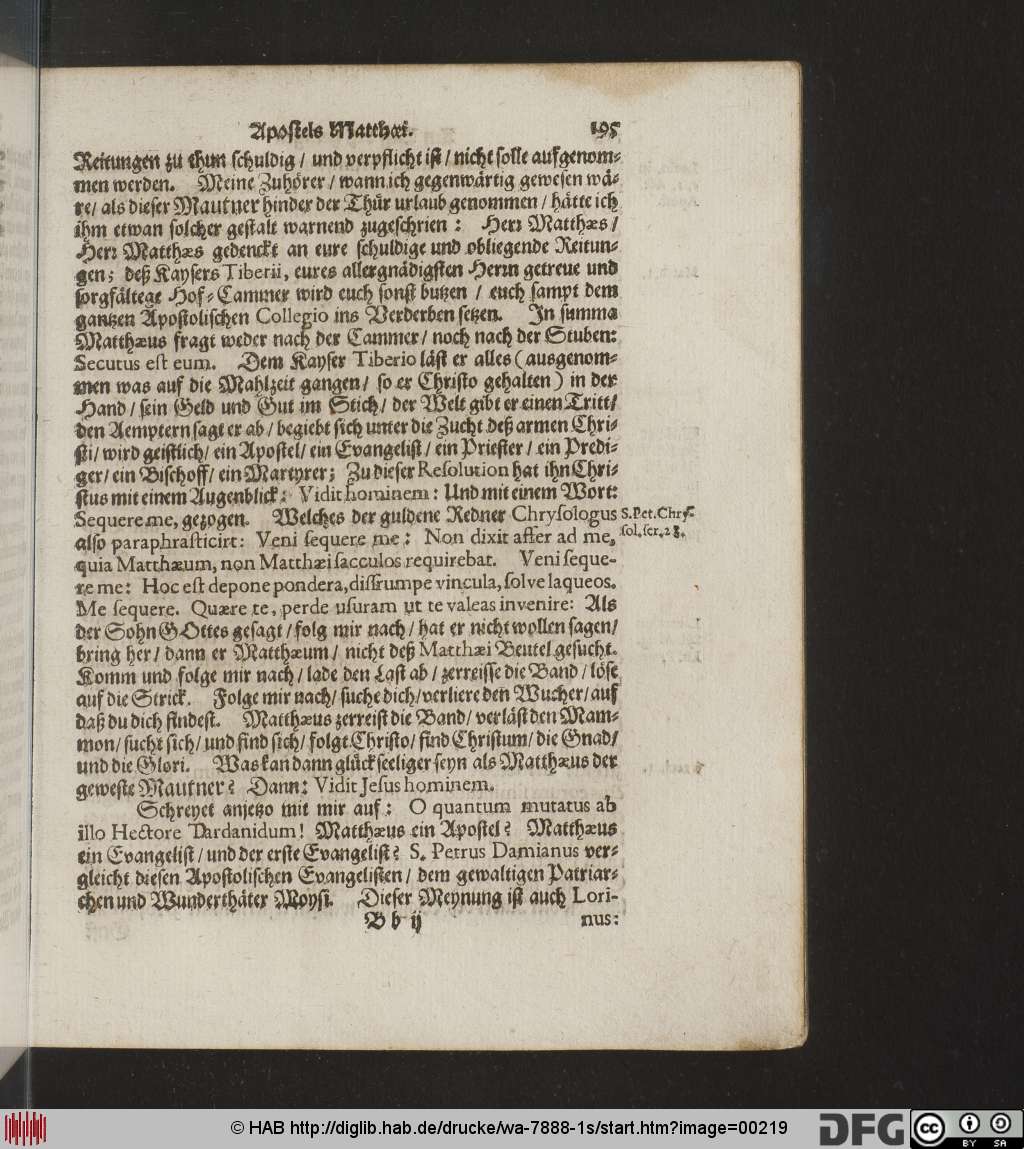 Apostels Matthæi. 195
Reitungen zu thun schuldig / und verpflicht ist / nicht solle aufgenom-
men werden. Meine Zuhörer / wann ich gegenwärtig gewesen wä-
re / als dieser Mautner hinder der Thür urlaub genommen / hätte ich
ihm etwan solcher gestalt warnend zugeschrien : Herr Matthæs /
Herr Matthæs gedenckt an eure schuldige und obliegende Reitun-
gen ; deß Kaysers Tiberii, eures allergnädigsten Herrn getreue und
sorgfältege Hof-Cammer wird euch sonst butzen / euch sampt dem
gantzen Apostolischen Collegio ins Verderben setzen. In summa
Matthæus fragt weder nach der Cammer / noch nach der Stuben:
Secutus est eum. Dem Kayser Tiberio läst er alles ( ausgenom-
men was auf die Mahlzeit gangen / so er Christo gehalten ) in der
Hand / sein Geld und Gut im Stich / der Welt gibt er einen Tritt /
den Aemptern sagt er ab / begiebt sich unter die Zucht deß armen Chri-
sti / wird geistlich / ein Apostel / ein Evangelist / ein Priester / ein Predi-
ger / ein Bischoff / ein Martyrer ; Zu dieser Resolution hat ihn Chri-
stus mit einem Augenblick : Vidit hominem : Und mit einem Wort:
Sequere me, gezogen. Welches der guldene Redner Chrysologus
S. Pet. Chry-
sol. ser. 28.
also paraphrasticirt: Veni sequere me : Non dixit affer ad me,
quia Matthæum, non Matthæi sacculos requirebat. Veni seque-
re me : Hoc est depone pondera, disrumpe vincula, solve laqueos.
Me sequere. Quære te, perde usuram ut te valeas invenire: Als
der Sohn GOttes gesagt / folg mir nach / hat er nicht wollen sagen /
bring her / dann er Matthæum / nicht deß Matthæi Beutel gesucht.
Komm und folge mir nach / lade den Last ab / zerreisse die Band / löse
auf die Strick. Folge mir nach / suche dich / verliere den Wucher / auf
daß du dich findest. Matthæus zerreist die Band / verläst den Mam-
mon / sucht sich / und find sich / folgt Christo / find Christum / die Gnad /
und die Glori. Was kan dann glückseeliger seyn als Matthæus der
geweste Mautner ? Dann : Vidit Jesus hominem.
Schreyet anjetzo mit mir auf : O quantum mutatus ab
illo Hectore Dardanidum ! Matthæus ein Apostel ? Matthæus
ein Evangelist / und der erste Evangelist ? S. Petrus Damianus ver-
gleicht diesen Apostolischen Evangelisten / dem gewaltigen Patriar-
chen und Wunderthäter Moysi. Dieser Meynung ist auch Lori-
B b ij nus:
© HAB http://diglib.hab.de/drucke/wa-7888-1s/start.htm?image=00219
DFG
cc BY SA